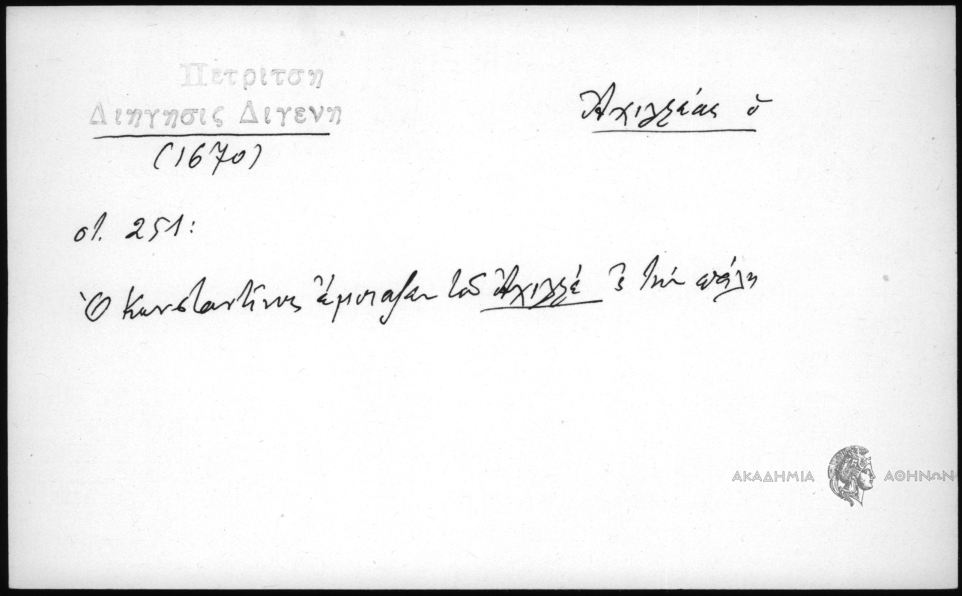 Πετρίτση
Διήγησις Διγενή
(1670)
Ἀχιλλέας ὁ
στ. 251:
Ὁ Κωνσταντῖνος ἔμοιαζεν τοῦ Ἀχιλλέ 'ς τὴν
ΑΚΑΔΗΜΙΑ ΑΘΗΝΩΝ